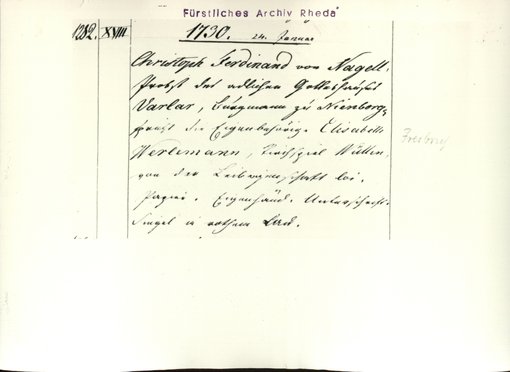 Fürstliches Archiv Rheda
1282. XVIII 1730. 24. Januar
Christoph Ferdinand von Nagell,
Probst des adlichen Gotteshauses
Varlar, Burgmann zu Nienborg,
spricht die Eigenbehörige Elisabeth
Werlemann, Kirchspiel Wüllen,
von der Leibeigenschaft los.
Freibrief
Papier. Eigenhänd. Unterschrift.
Siegel in rothem Lack.